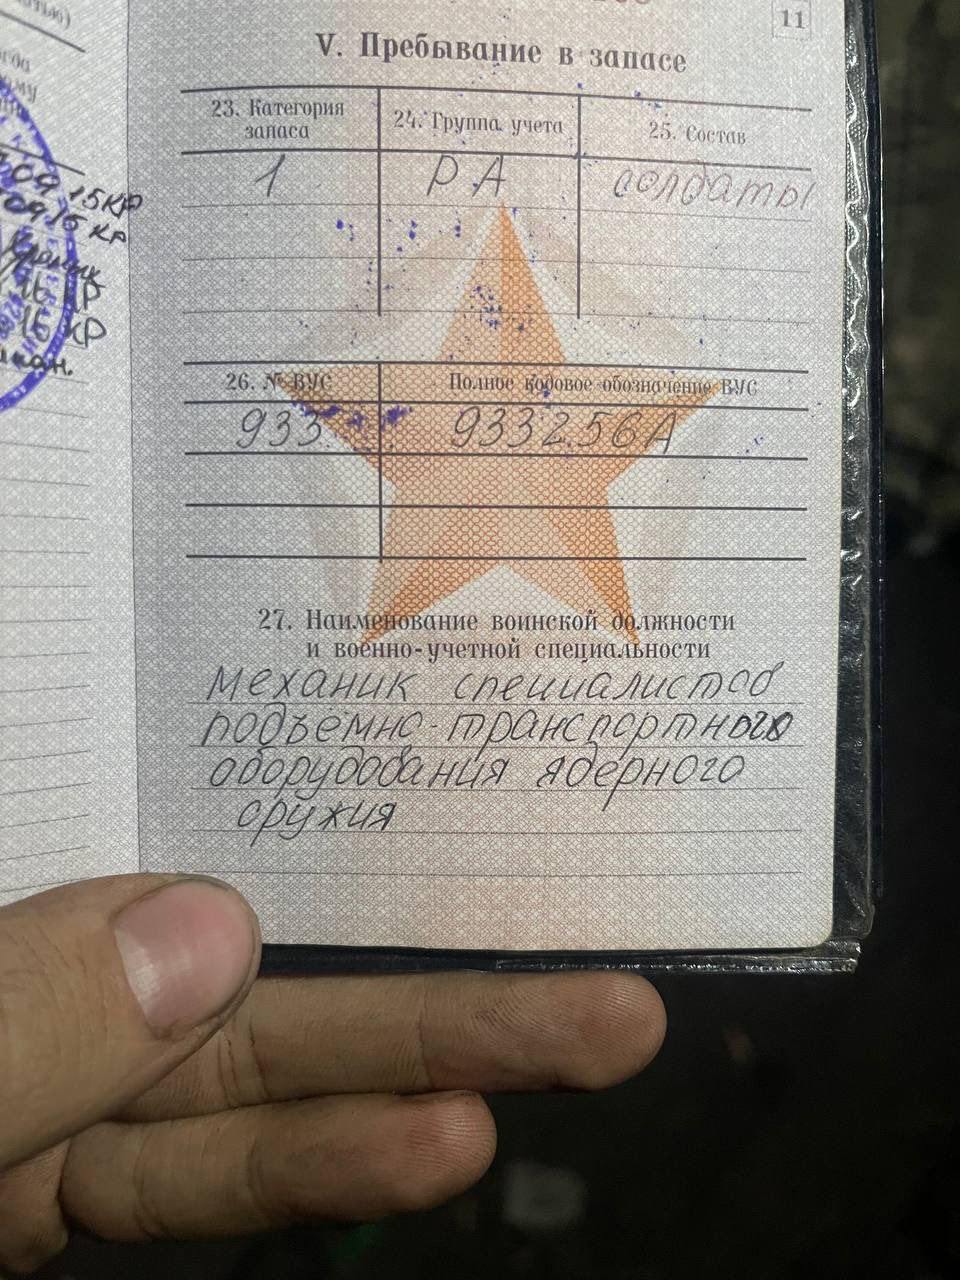 11
V. Пребывание в запасе
23. Категория запаса
24. Группа учета
25. Состав
1 РА солдаты
26. № ВУС
Полное кодовое обозначение ВУС
933 933256А
27. Наименование воинской должности
и военно-учетной специальности
механик специалистов
подъёмно-транспортного
оборудования ядерного
оружия
09 15 КР
09 15 КР
16 КР
16 КР